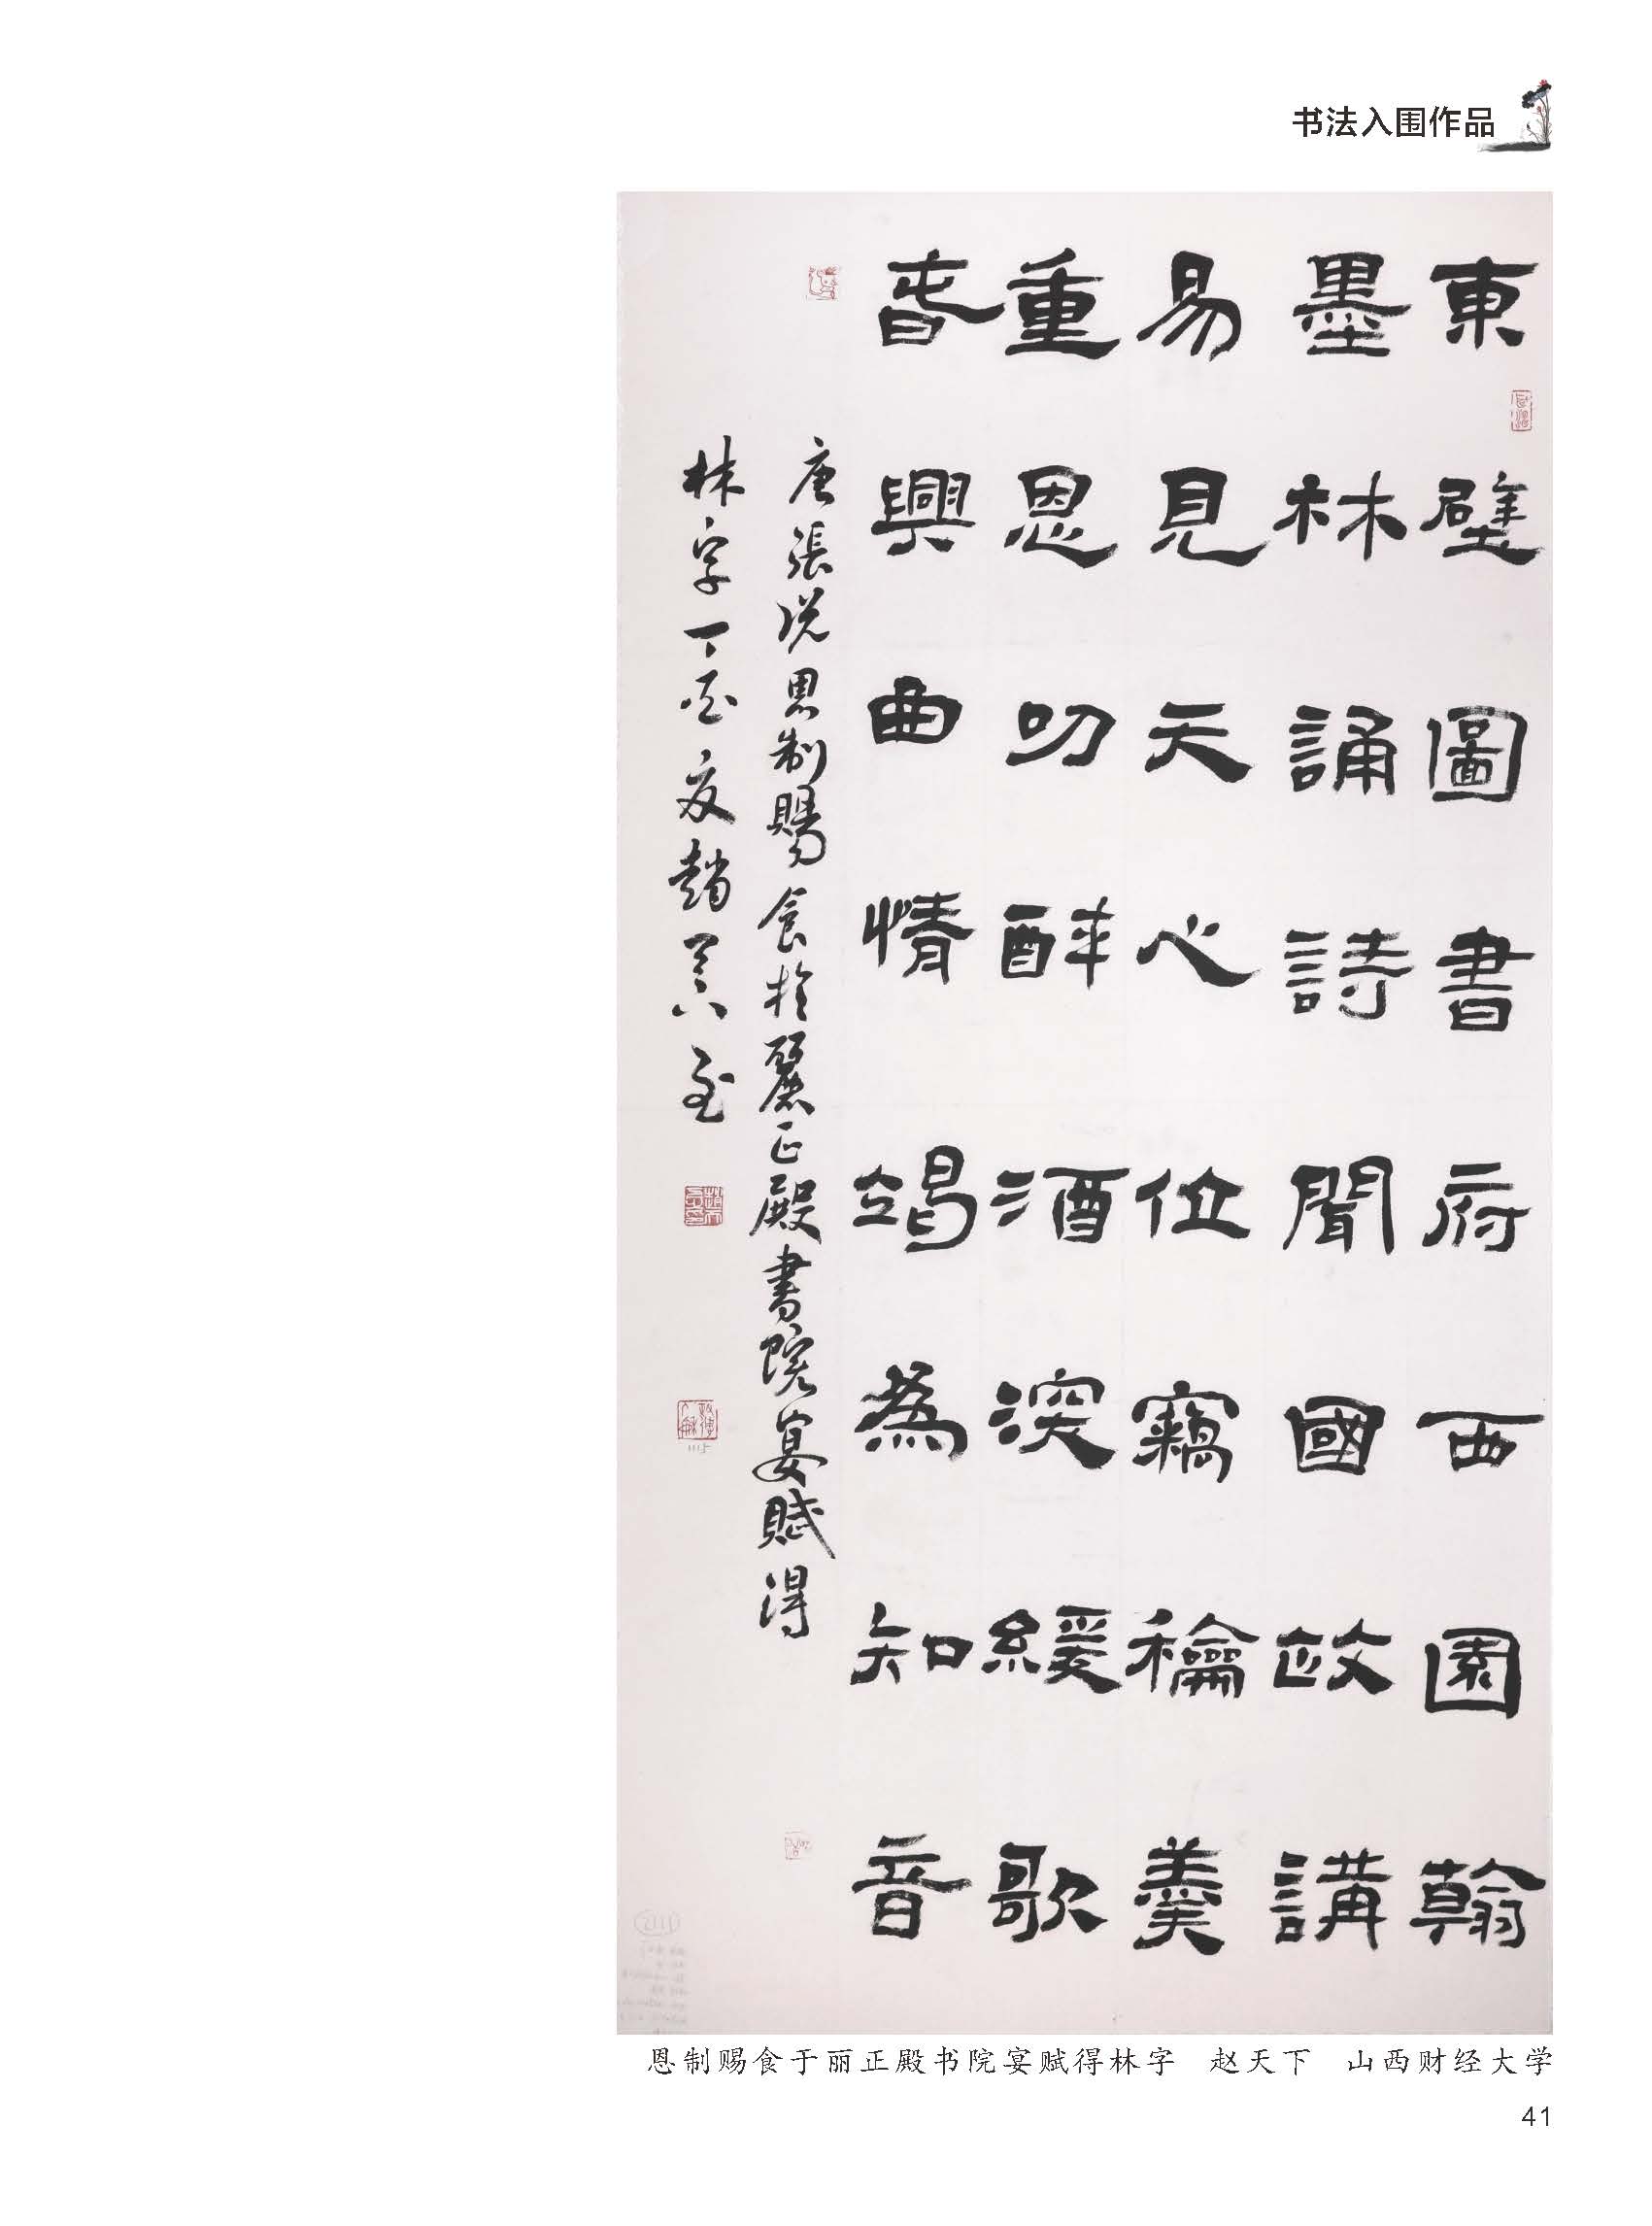 书法入围作品
東壁圖書府西園翰
墨林誦詩聞國政講
易見天心位竊龢羹
重恩叨醉酒深緩歌
春興曲情竭為知音
唐張說恩制賜食於麗正殿書院宴賦得
林字丁酉夏趙天下
1115
恩制赐食于丽正殿书院宴赋得林字 赵天下 山西财经大学
41